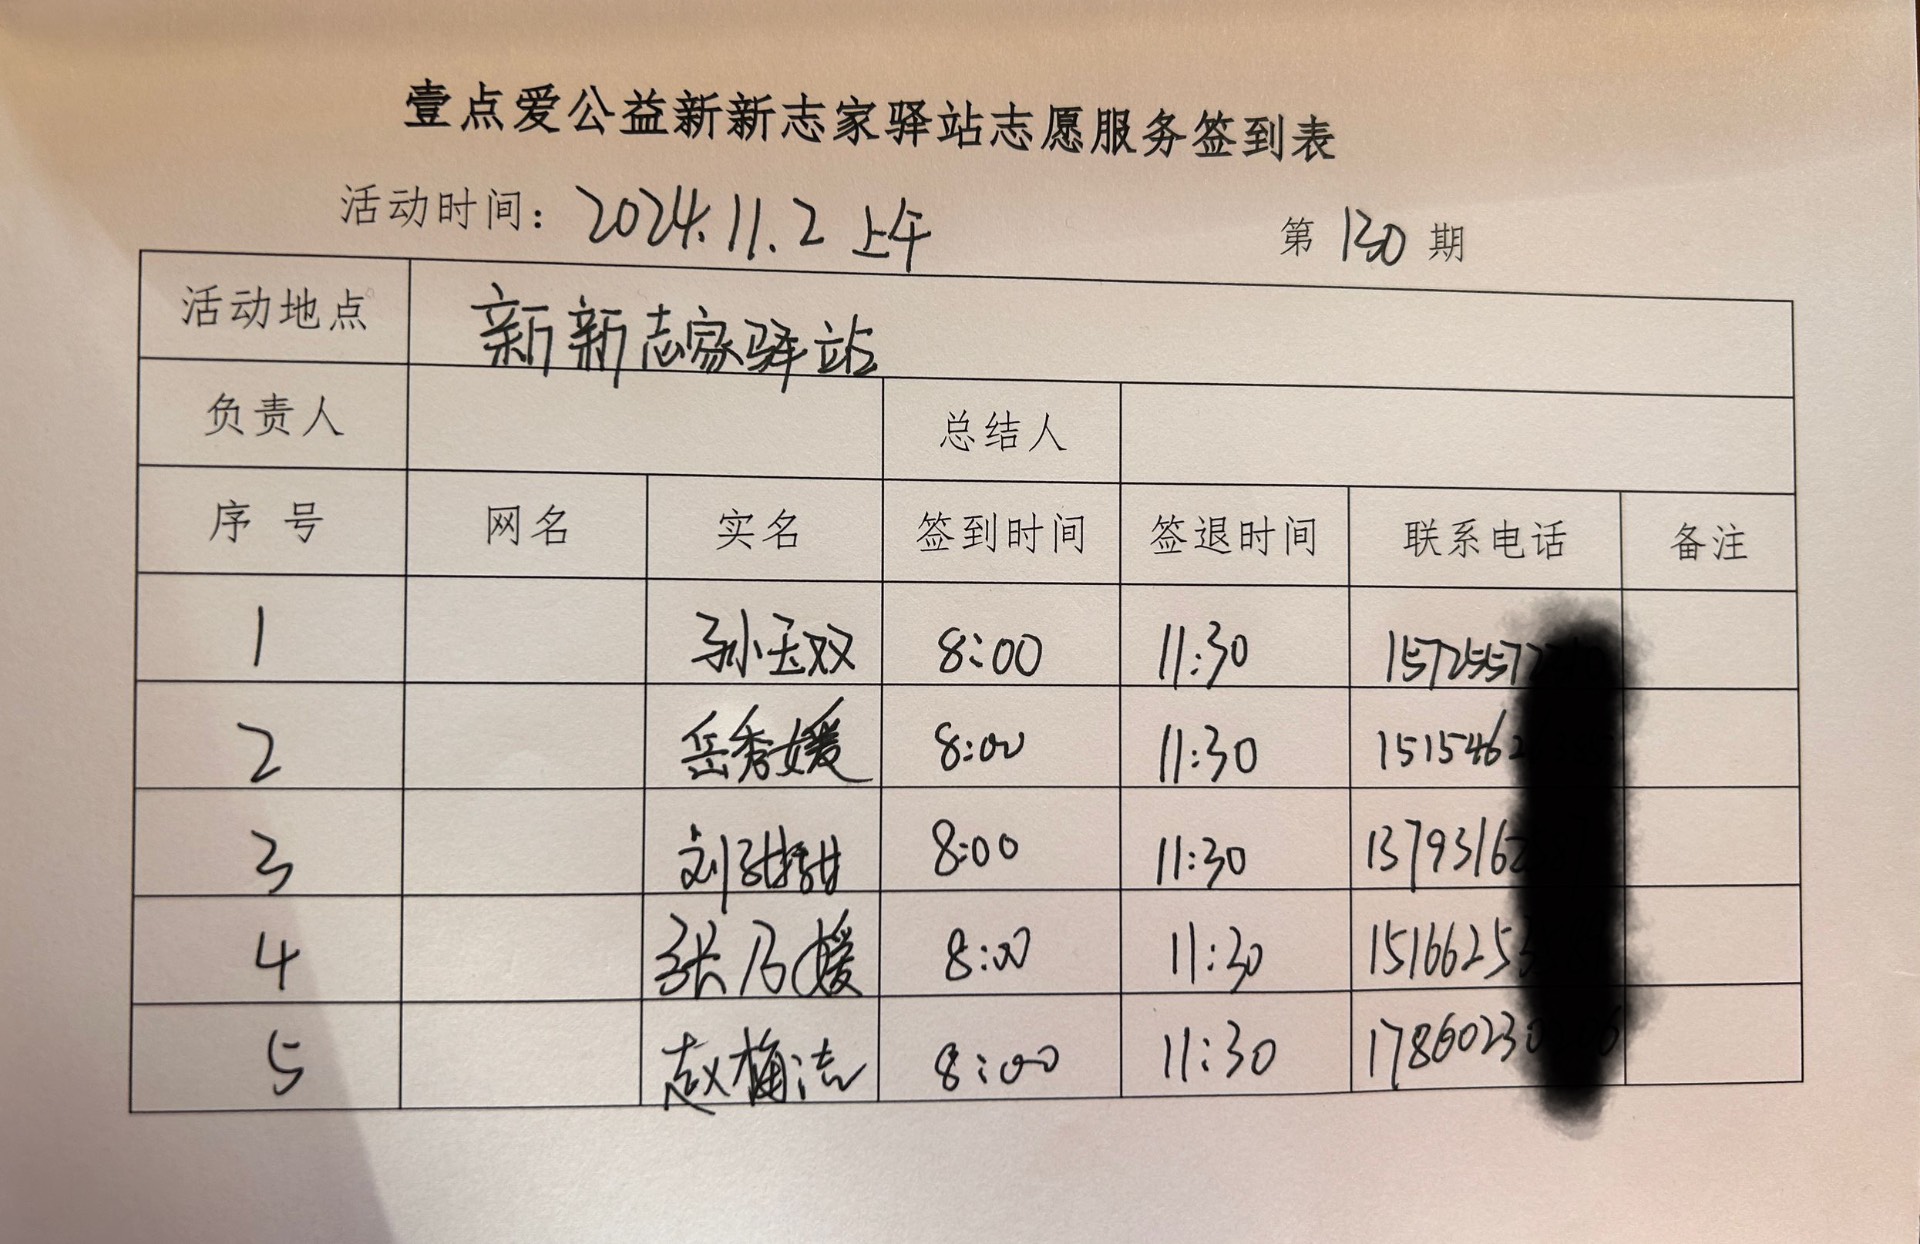 壹点爱公益新新志家驿站志愿服务签到表
活动时间：2024.11.2 上午 第 130 期
活动地点 新新志家驿站
负责人 总结人
序号 网名 实名 签到时间 签退时间 联系电话 备注
1 孙玉双 8:00 11:30 1572557
2 岳秀媛 8:00 11:30 1515462
3 刘甜甜 8:00 11:30 1379316
4 张乃媛 8:00 11:30 1516625
5 赵梅洁 8:00 11:30 1786023